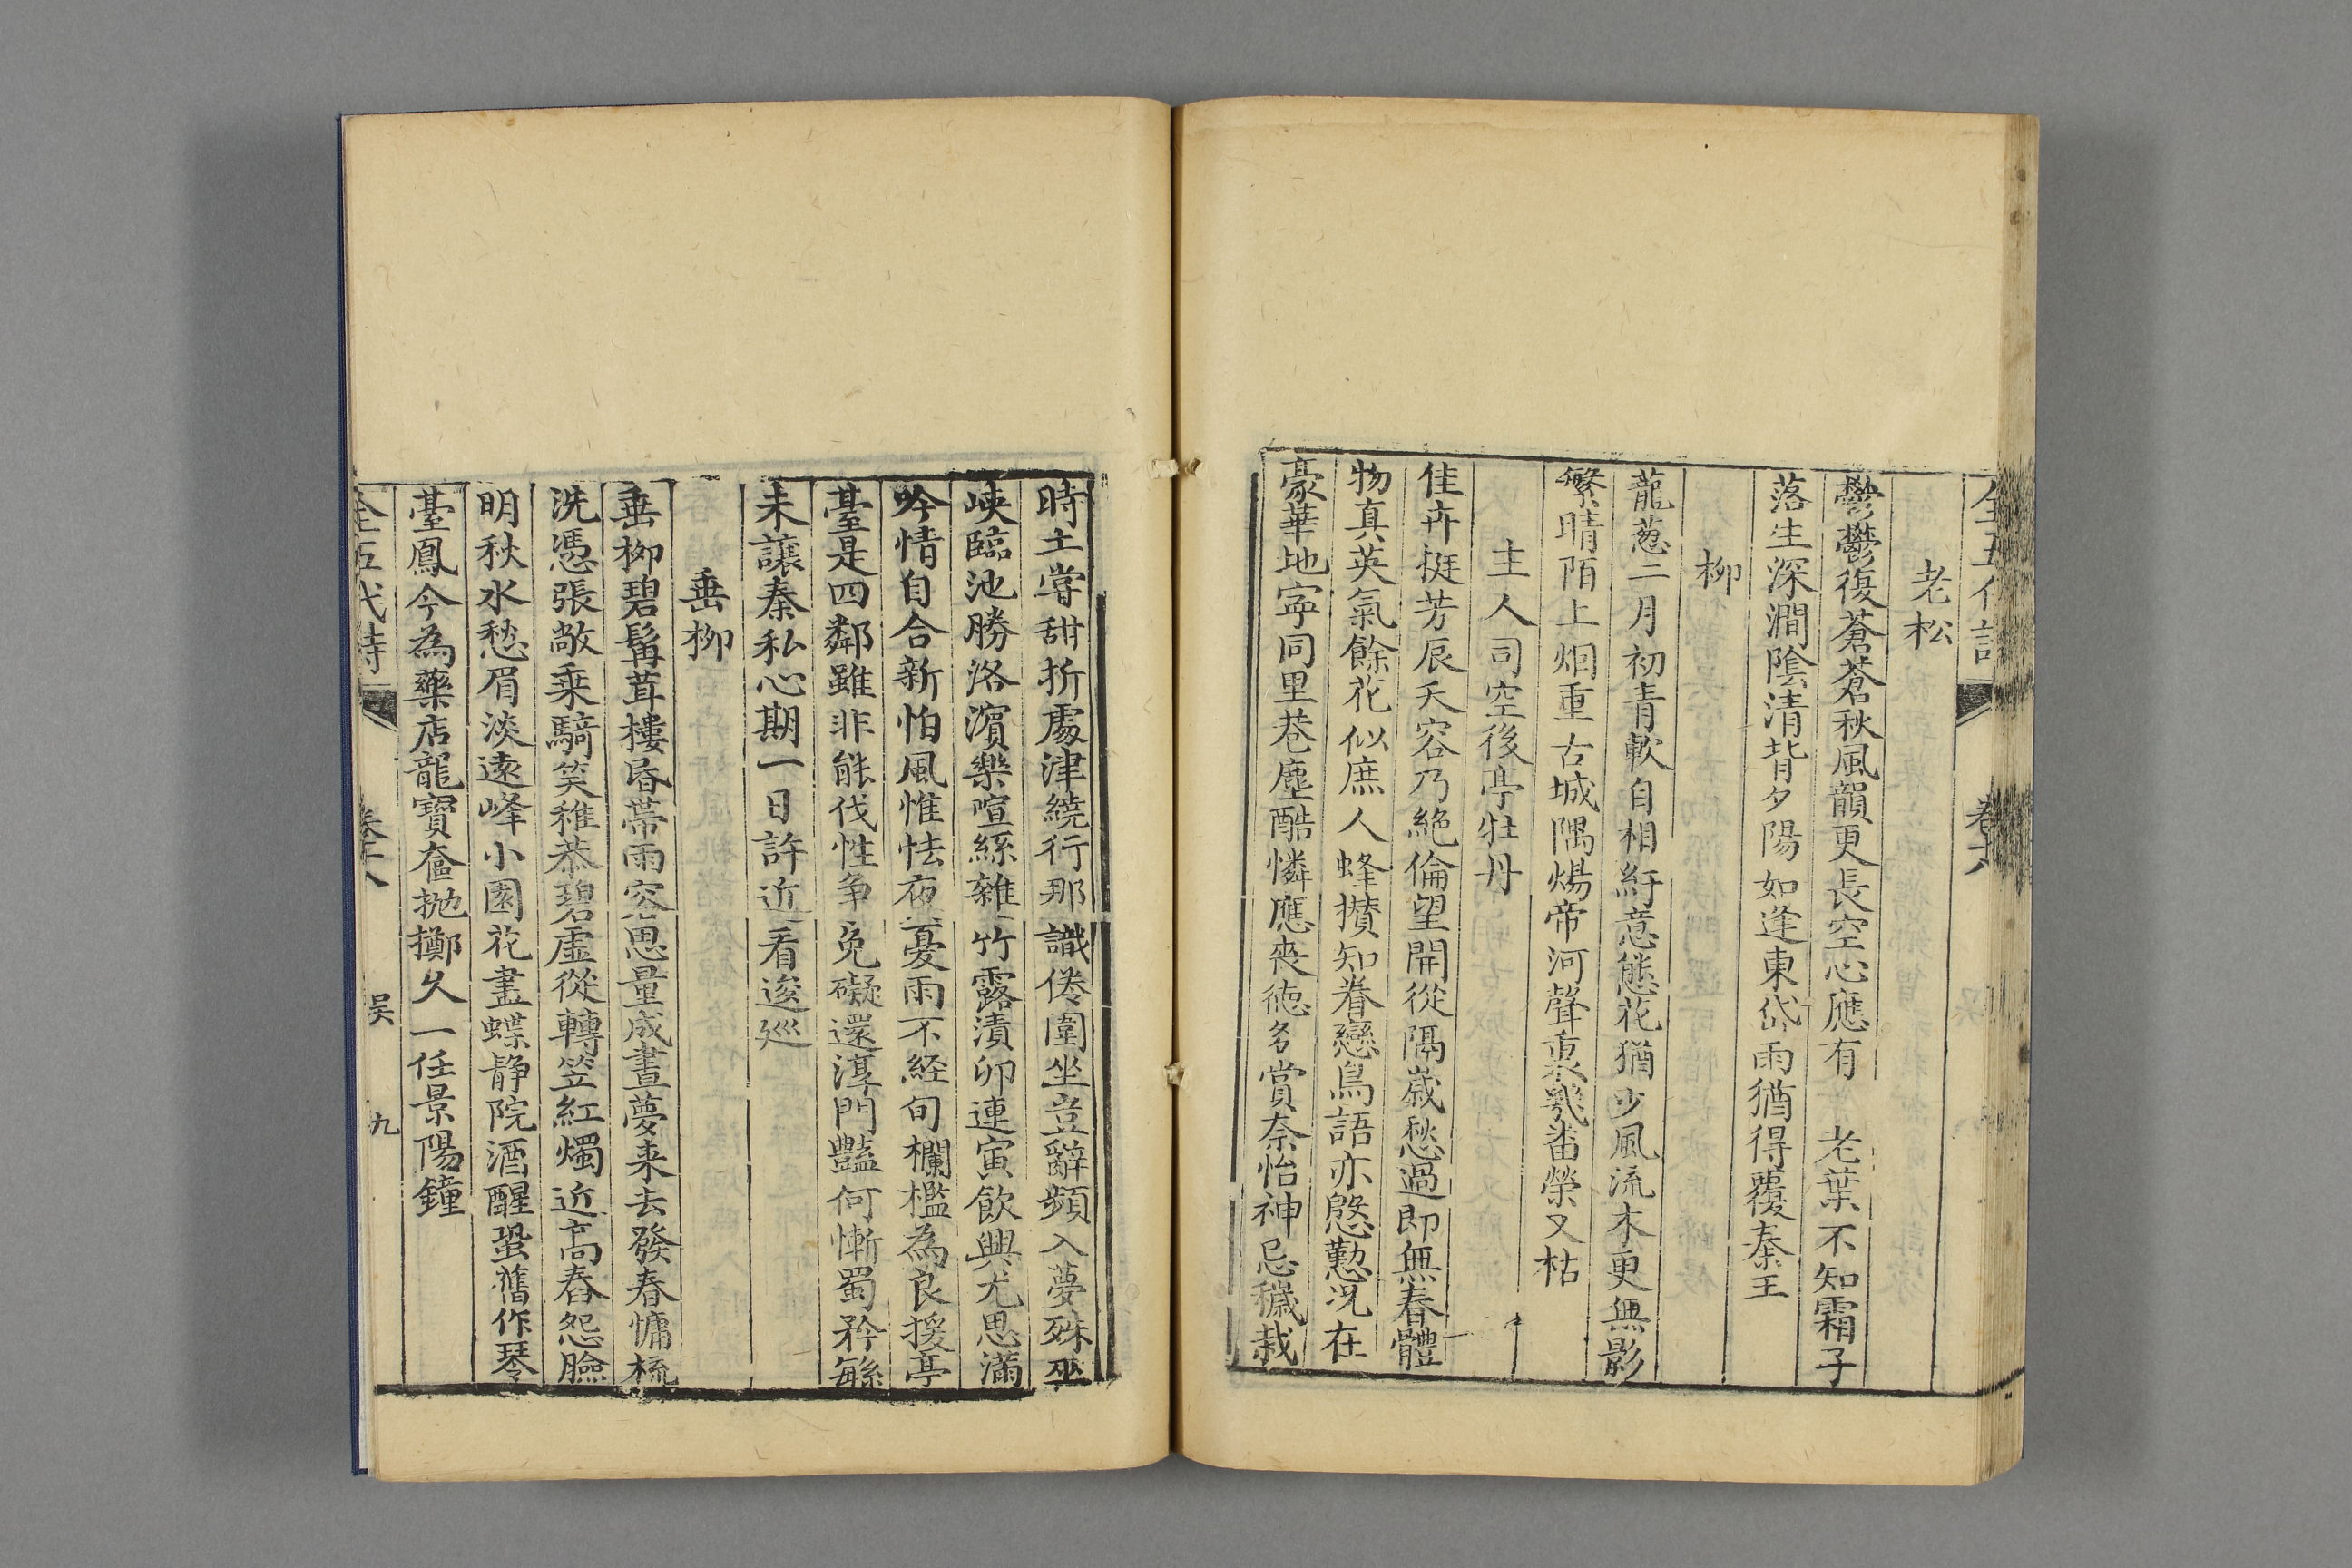 全五代詩
老松
鬱鬱復蒼蒼秋風韻更長空心應有 老葉不知霜子
落生深澗陰清背夕陽如逢東岱雨猶得覆秦王
柳
蘢葱二月初青軟自相紆意態花猶少風流木更無影
繁晴陌上烟重古城隅煬帝河聲裏幾畨榮又枯
主人司空後亭牡丹
佳卉挺芳辰夭容乃絶倫望開從隔嵗愁過即無春體
物真英氣餘花似庶人蜂攅知眷戀鳥語亦慇懃况在
豪華地寧同里巷塵酷憐應丧徳多賞奈怡神忌穢栽
時土嘗甜折處津繞行那識倦圍坐豈辭頻入夢殊巫
峽臨池勝洛濵樂喧絲雜竹露漬卯連寅飲興尤思滿
吟情自合新怕風惟怯夜憂雨不経旬欄檻為良援亭
臺是四鄰雖非能伐性争免礙還淳門豔何慚蜀矜繇
未讓秦私心期一日許近看逡廵
垂柳
垂栁碧鬅茸樓昏帶雨容思量成晝夢来去發春慵梳
洗憑張敞乗騎笑稚恭碧虚從轉笠紅燭近高舂怨臉
明秋水愁眉淡遠峰小園花盡蝶静院酒醒蛩舊作琴
臺鳳今為藥店龍寶奩抛擲久一任景陽鐘
全五代詩
吴
九